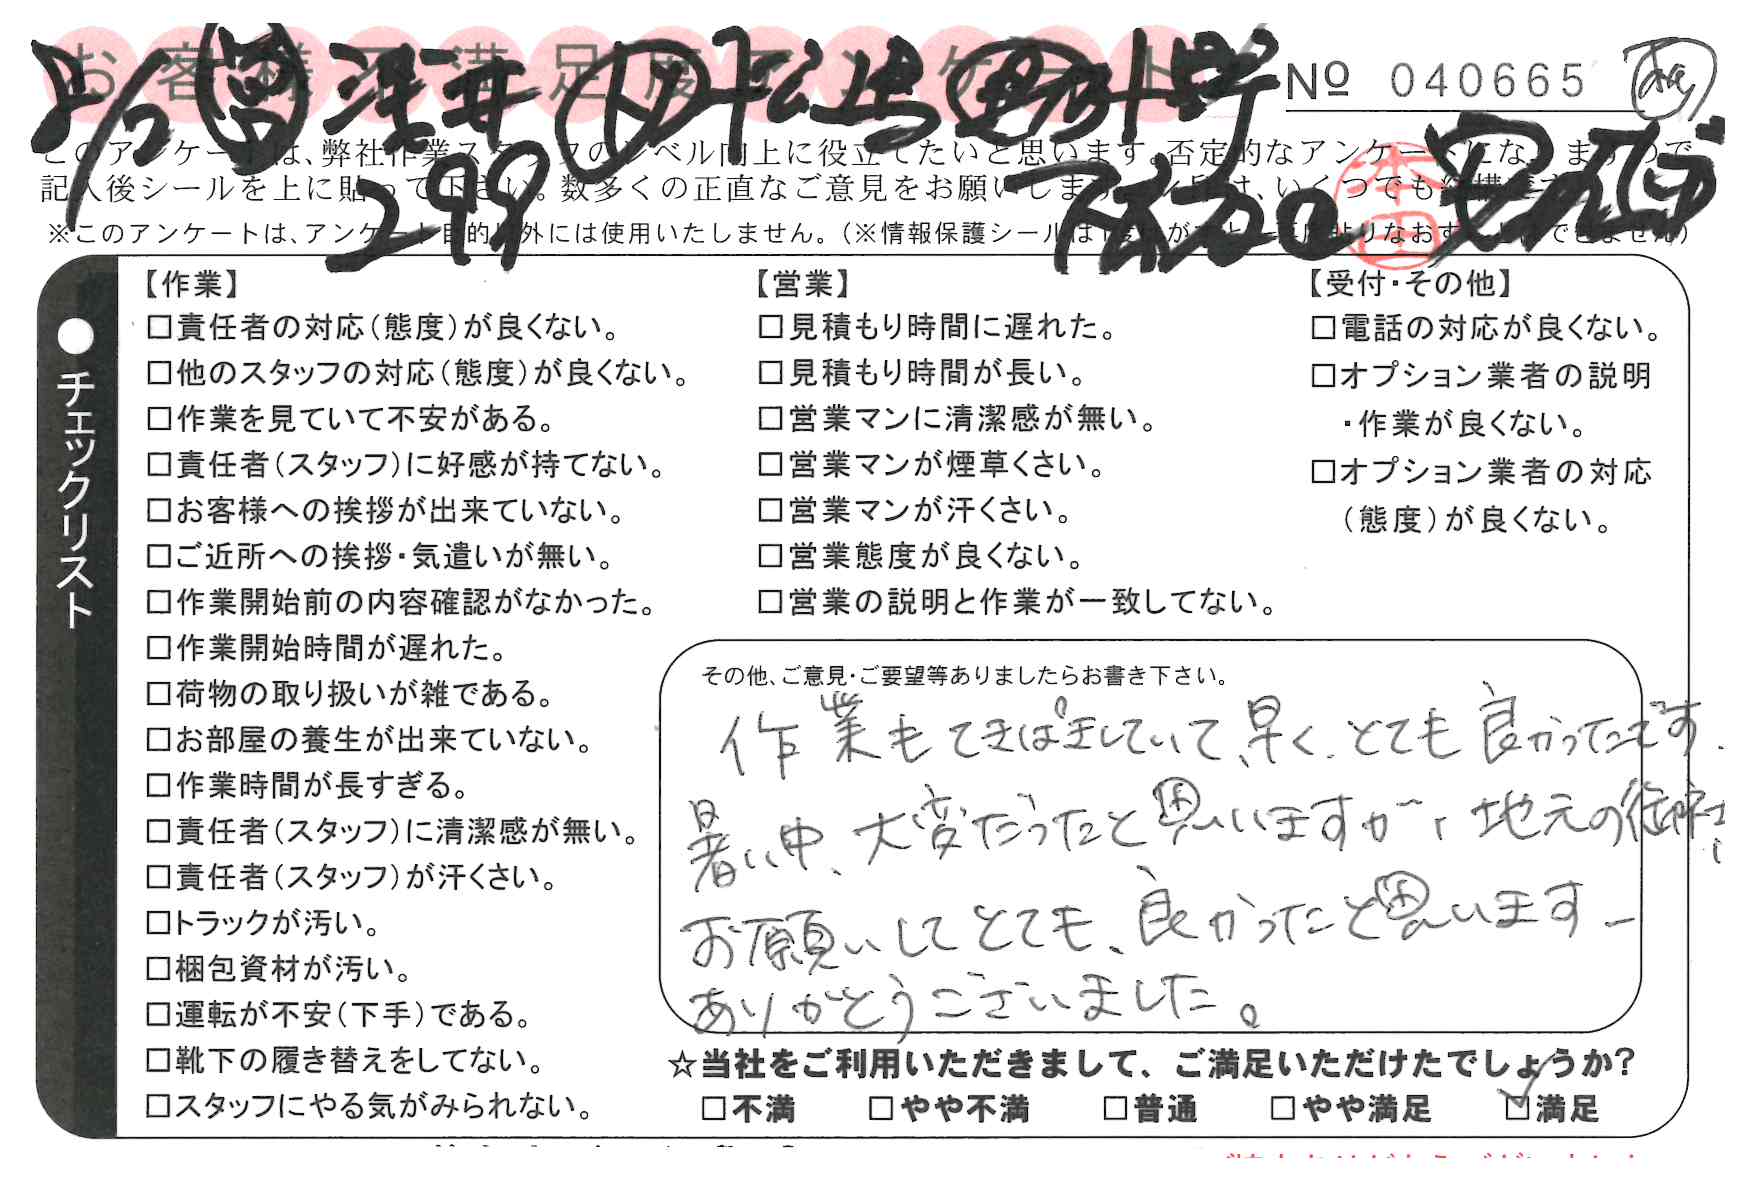 お客様ご満足度アンケート
No 040665
このアンケートは、弊社作業スタッフのレベル向上に役立てたいと思います。否定的なアンケートになりますので
記入後シールを上に貼って下さい。数多くの正直なご意見をお願いします。
※このアンケートは、アンケート目的以外には使用いたしません。(※情報保護シールは
299
本田
●チェックリスト
【作業】
□責任者の対応(態度)が良くない。
□他のスタッフの対応(態度)が良くない。
□作業を見ていて不安がある。
□責任者(スタッフ)に好感が持てない。
□お客様への挨拶が出来ていない。
□ご近所への挨拶・気遣いが無い。
□作業開始前の内容確認がなかった。
□作業開始時間が遅れた。
□荷物の取り扱いが雑である。
□お部屋の養生が出来ていない。
□作業時間が長すぎる。
□責任者(スタッフ)に清潔感が無い。
□責任者(スタッフ)が汗くさい。
□トラックが汚い。
□梱包資材が汚い。
□運転が不安(下手)である。
□靴下の履き替えをしてない。
□スタッフにやる気がみられない。
【営業】
□見積もり時間に遅れた。
□見積もり時間が長い。
□営業マンに清潔感が無い。
□営業マンが煙草くさい。
□営業マンが汗くさい。
□営業態度が良くない。
□営業の説明と作業が一致してない。
【受付・その他】
□電話の対応が良くない。
□オプション業者の説明
・作業が良くない。
□オプション業者の対応
(態度)が良くない。
その他、ご意見・ご要望等ありましたらお書き下さい。
作業もてきぱきしていて、早く、とても良かったです。
暑い中、大変だったと思いますが、地元の御社に
お願いしてとても、良かったと思います
ありがとうございました。
☆当社をご利用いただきまして、ご満足いただけたでしょうか?
□不満 □やや不満 □普通 □やや満足 ☑満足